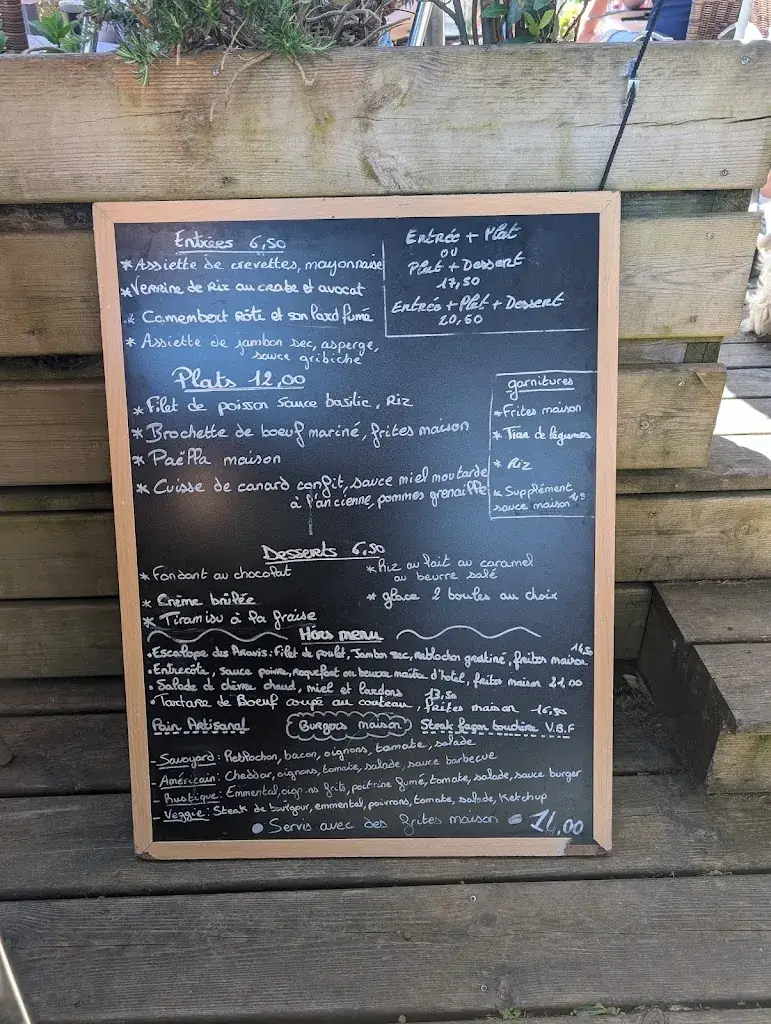 Entrées 6,50
* Assiette de crevettes, mayonnaise
* Verrine de Riz au crabe et avocat
* Camembert Rôti et son lard fumé
* Assiette de jambon sec, asperge,
sauce gribiche
Entrée + Plat
ou
Plat + Dessert
17,50
Entrée + Plat + Dessert
20,50
Plats 12,00
* Filet de poisson sauce basilic, Riz
* Brochette de boeuf mariné, frites maison
* Paëlla maison
* Cuisse de canard confit, sauce miel moutarde
à l'ancienne, pommes grenaille
garnitures
* Frites maison
* Tian de légumes
* Riz
* Supplément
sauce maison
Desserts 6,50
* Fondant au chocolat
* Crème brûlée
* Tiramisu à la fraise
* Riz au lait au caramel
au beurre salé
* glace 2 boules au choix
Hors menu
• Escalope des Aravis: Filet de poulet, Jambon sec, Reblochon gratiné, frites maison 16,50
• Entrecôte, sauce poivre, roquefort ou beurre maître d'hotel, frites maison 21,00
• Salade de chèvre chaud, miel et lardons 13,50
• Tartare de Boeuf coupé au couteau, frites maison 16,50
Pain Artisanal Burgers maison Steak façon bouchère V.B.F
- Savoyard: Reblochon, bacon, oignons, tomate, salade
- Américain: Cheddar, oignons, tomate, salade, sauce barbecue
- Rustique: Emmental, oignons frits, poitrine fumé, tomate, salade, sauce burger
- Veggie: Steak de boulgour, emmental, poivrons, tomate, salade, Ketchup
• Servis avec des frites maison • 14,00